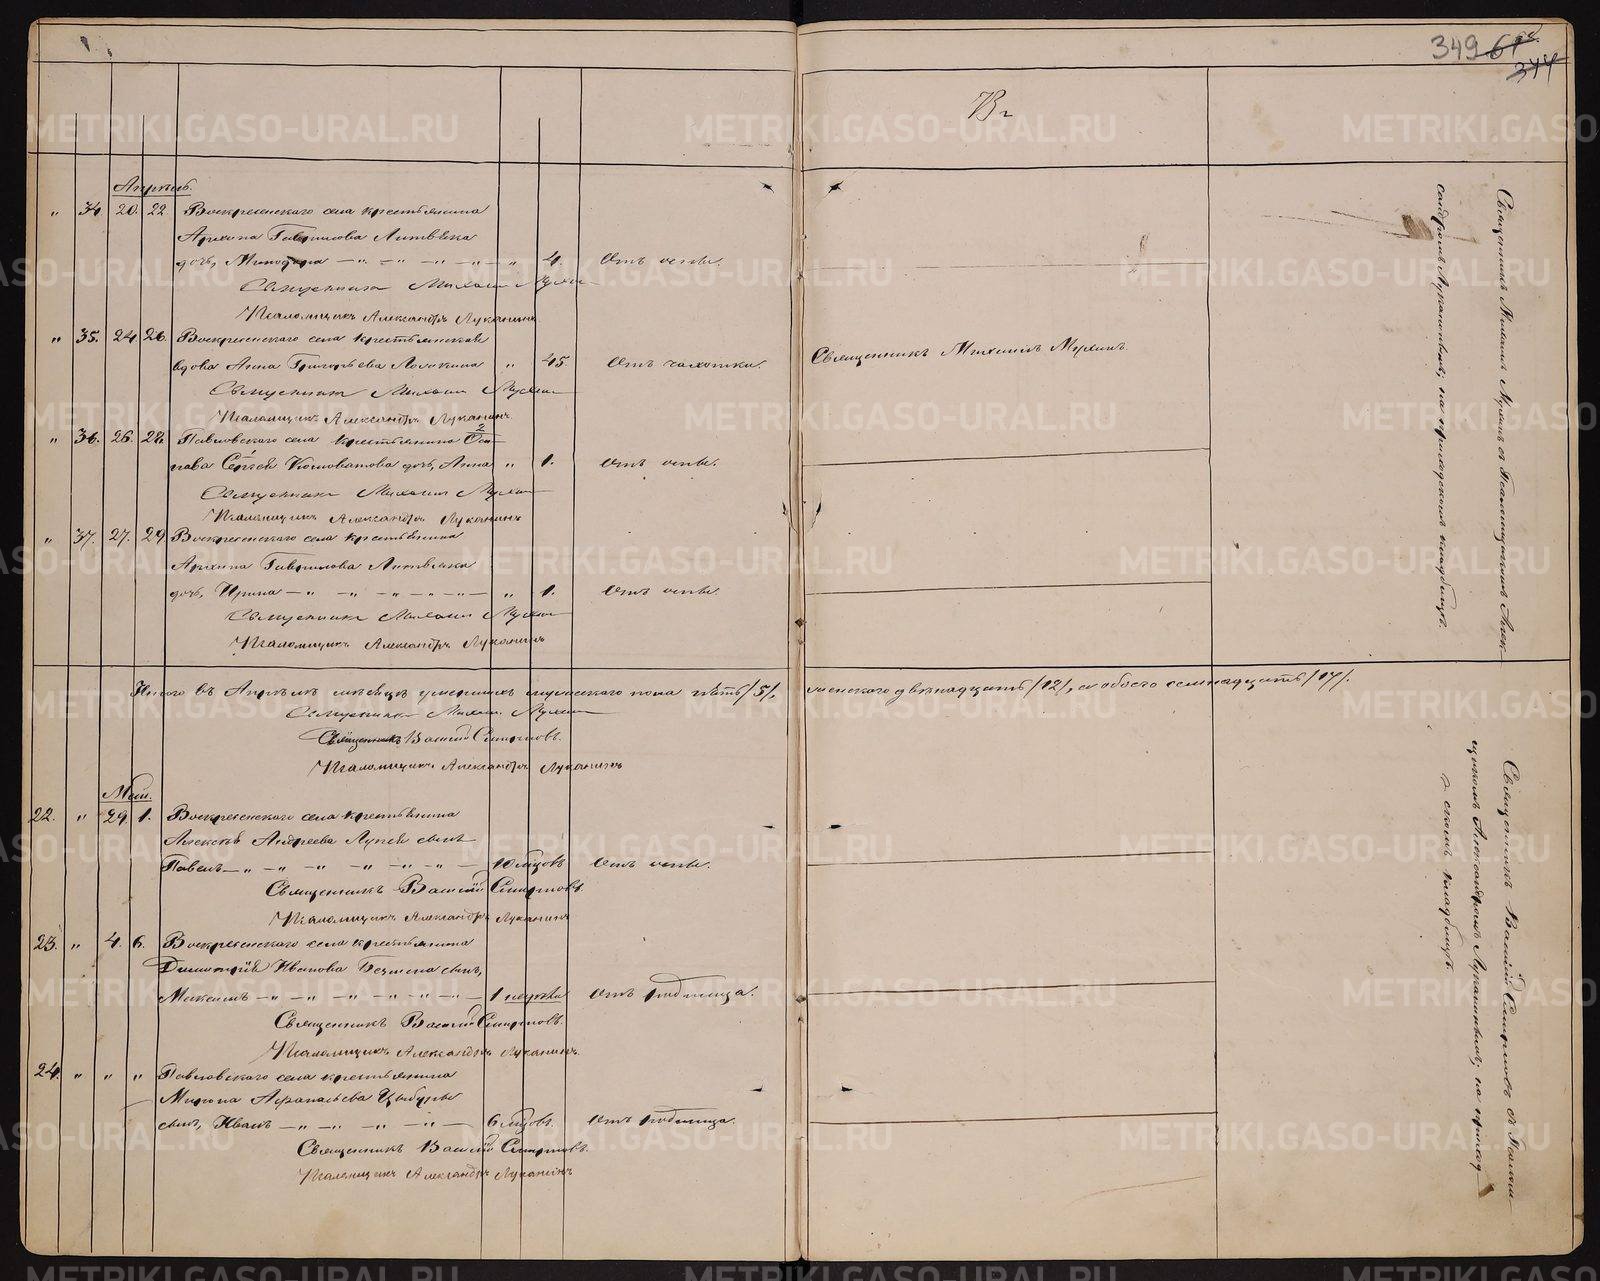 349 61
344
Апрель.
" 34 20. 22. Воскресенскаго села крестьянина
Архипа Гаврилова Литвяка
дочь, Минодора — " — " — " — " — " 4. Отъ оспы.
Священникъ Михаилъ Мухинъ
Псаломщикъ Александръ Луканинъ
" 35. 24. 26. Воскресенскаго села крестьянская
вдова Анна Григорьева " 45 Отъ чахотки. Священникъ Михаилъ Мухинъ.
Священникъ Михаилъ Мухинъ
Псаломщикъ Александръ Луканинъ.
" 36. 26. 28. Павловскаго села крестьянина
Сергея дочь, Анна " 1. Отъ оспы.
Священникъ Михаилъ Мухинъ
Псаломщикъ Александръ Луканинъ
" 37. 27. 29. Воскресенскаго села крестьянина
Архипа Гаврилова Литвяка
дочь, Ирина — " — " — " — " — " 1. Отъ оспы.
Священникъ Михаилъ Мухинъ
Псаломщикъ Александръ Луканинъ
Итого въ Апрѣлѣ мѣсяцѣ умершихъ мужескаго пола пять /5/, женскаго двѣнадцать /12/, а обоего семнадцать /17/.
Священникъ Михаилъ Мухинъ
Священникъ Василій Смирновъ.
Псаломщикъ Александръ Луканинъ
Май.
22. " 29 1. Воскресенскаго села крестьянина
Алексѣя Андреева сынъ
Павелъ — " — " — " — " — " — 10 мѣсяцовъ Отъ оспы.
Священникъ Василій Смирновъ.
Псаломщикъ Александръ Луканинъ
23. " 4. 6. Воскресенскаго села крестьянина
Димитрія Иванова сынъ,
Максимъ — " — " — " — " — " — " — 1 недѣли Отъ родимца.
Священникъ Василій Смирновъ.
Псаломщикъ Александръ Луканинъ.
24. " " " Павловскаго села крестьянина
Мирона Афанасьева Цыбули
сынъ, Иванъ — " — " — " — " — 6 мѣсяцовъ. Отъ родимца.
Священникъ Василій Смирновъ.
Псаломщикъ Александръ Луканинъ
Священникъ Михаилъ Мухинъ съ Псаломщикомъ Алек-
сандромъ Луканинымъ; на приходскомъ кладбищѣ.
Священникъ Василій Смирновъ съ Псалом-
щикомъ Александромъ Луканинымъ; на приход-
скомъ кладбищѣ.
METRIKI.GASO-URAL.RU